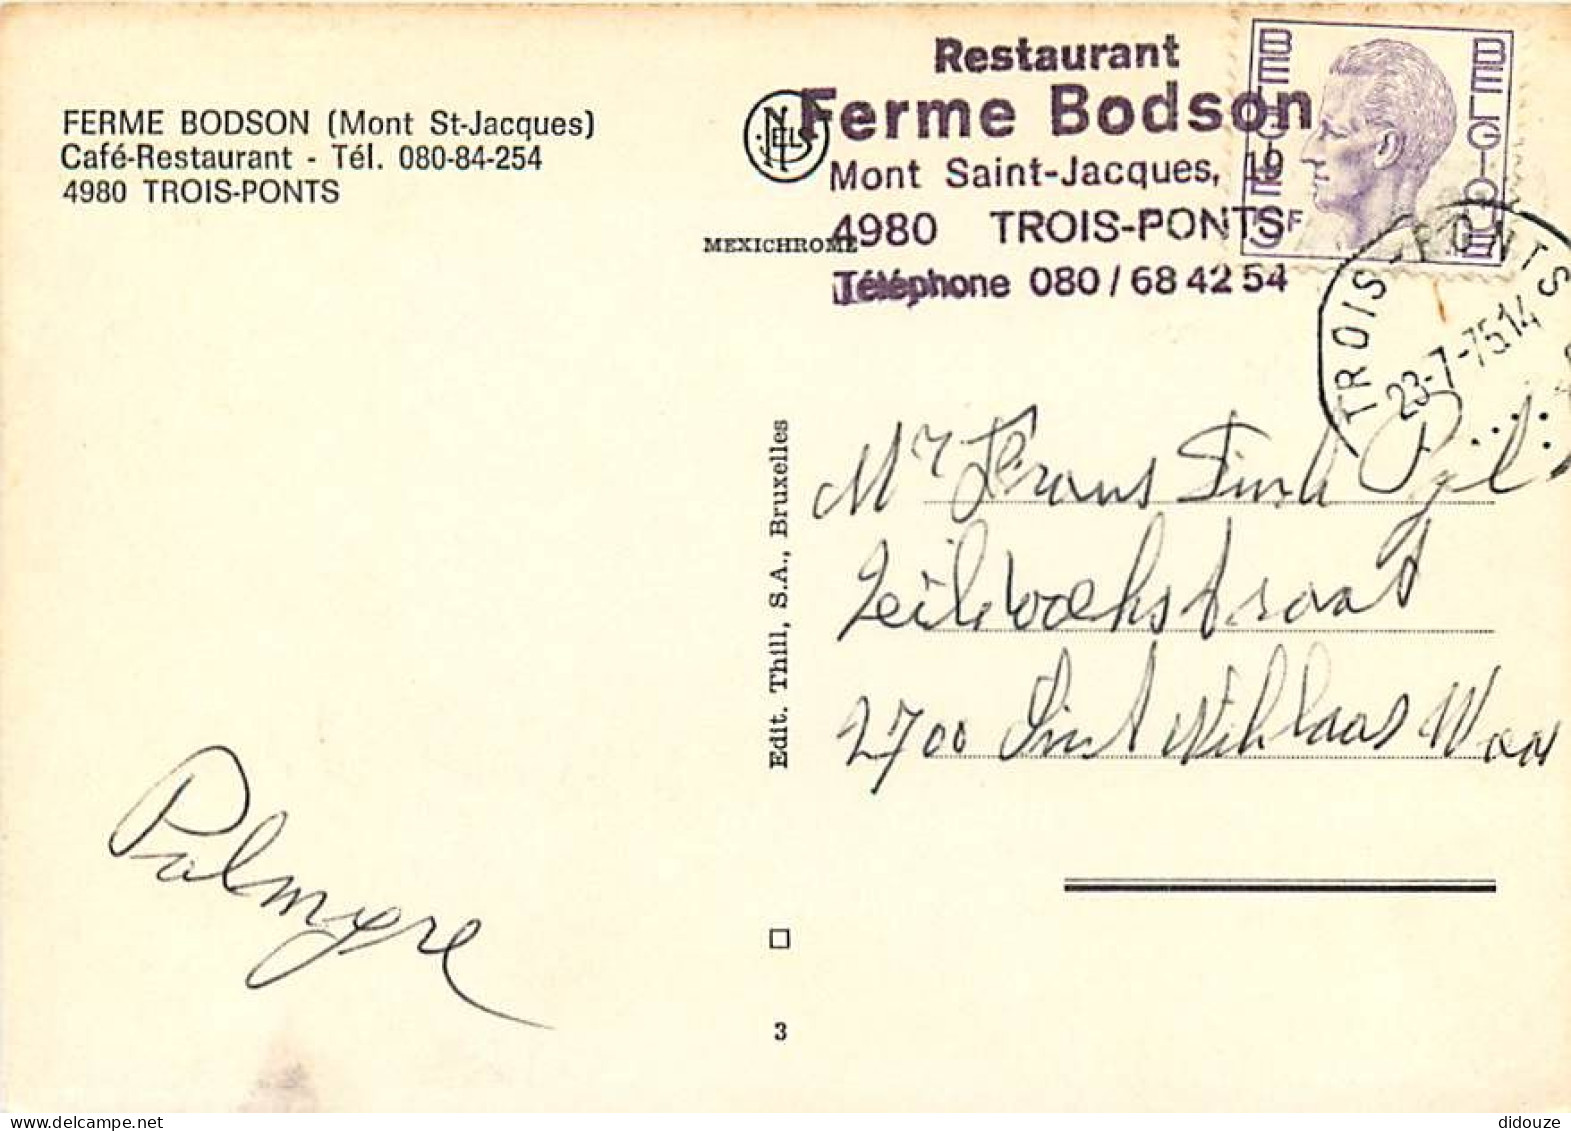 FERME BODSON (Mont St-Jacques)
Café-Restaurant - Tél. 080-84-254
4980 TROIS-PONTS
NELS
MEXICHROME
Restaurant
Ferme Bodson
Mont Saint-Jacques, 19
4980 TROIS-PONTS
Téléphone 080 / 68 42 54
BELGIQUE
BELGIE
F
TROIS-PONTS
23-7-75 14
Edit. Thill, S.A., Bruxelles
Mr Frans
2700 Sint Niklaas Waas
Palmyre
3
didouze